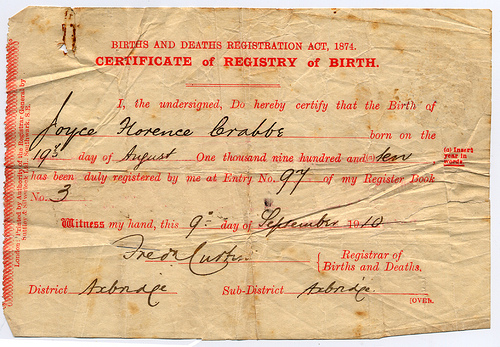 BIRTHS AND DEATHS REGISTRATION ACT, 1874.
CERTIFICATE of REGISTRY of BIRTH.
I, the undersigned, Do hereby certify that the Birth of
Joyce Florence Crabbe born on the
19th day of August One thousand nine hundred and (a) ten
(a) Insert
year in
words.
has been duly registered by me at Entry No. 97 of my Register Book
No. 3
Witness my hand, this 9th day of September 1910
Fredk Curtis
Registrar of
Births and Deaths.
District Axbridge Sub-District Axbridge
[OVER.
London: Printed by Authority of the Registrar General by